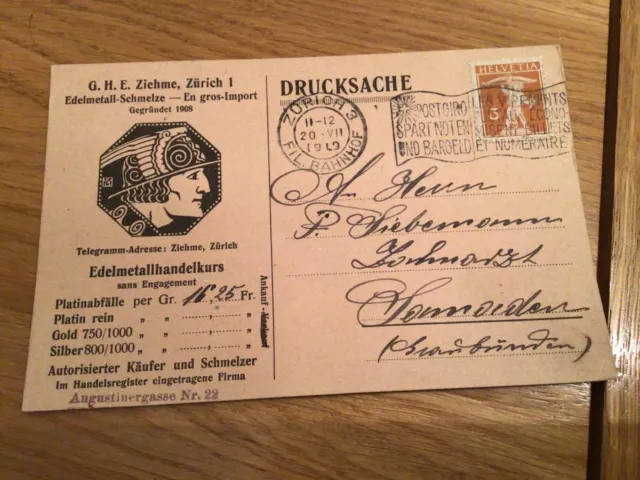 G. H. E. Ziehme, Zürich 1
Edelmetall-Schmelze — En gros-Import
Gegründet 1908
Telegramm-Adresse: Ziehme, Zürich
Edelmetallhandelkurs
sans Engagement
Platinabfälle per Gr. 16.25 Fr.
Platin rein „ „ „
Gold 750/1000 „ „ „
Silber 800/1000 „ „ „
Ankauf
Autorisierter Käufer und Schmelzer
Im Handelsregister eingetragene Firma
Augustinergasse Nr. 22
DRUCKSACHE
ZÜRICH 3
11-12
20 VII
FIL. BAHNHOF
POSTGIRO
SPART NOTEN
UND BARGELD
VIREMENTS
BILLETS
ET NUMERAIRE
HELVETIA
5
Herrn
P. Siebenmann
Zahnarzt
Samaden
(Graubünden)